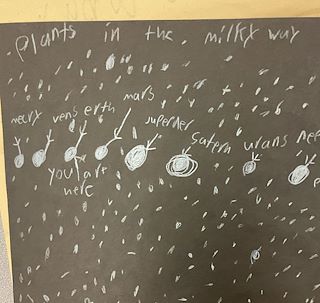 plants in the milky way
mars
mecry vens erth superner
Satern urans nep
you are
here